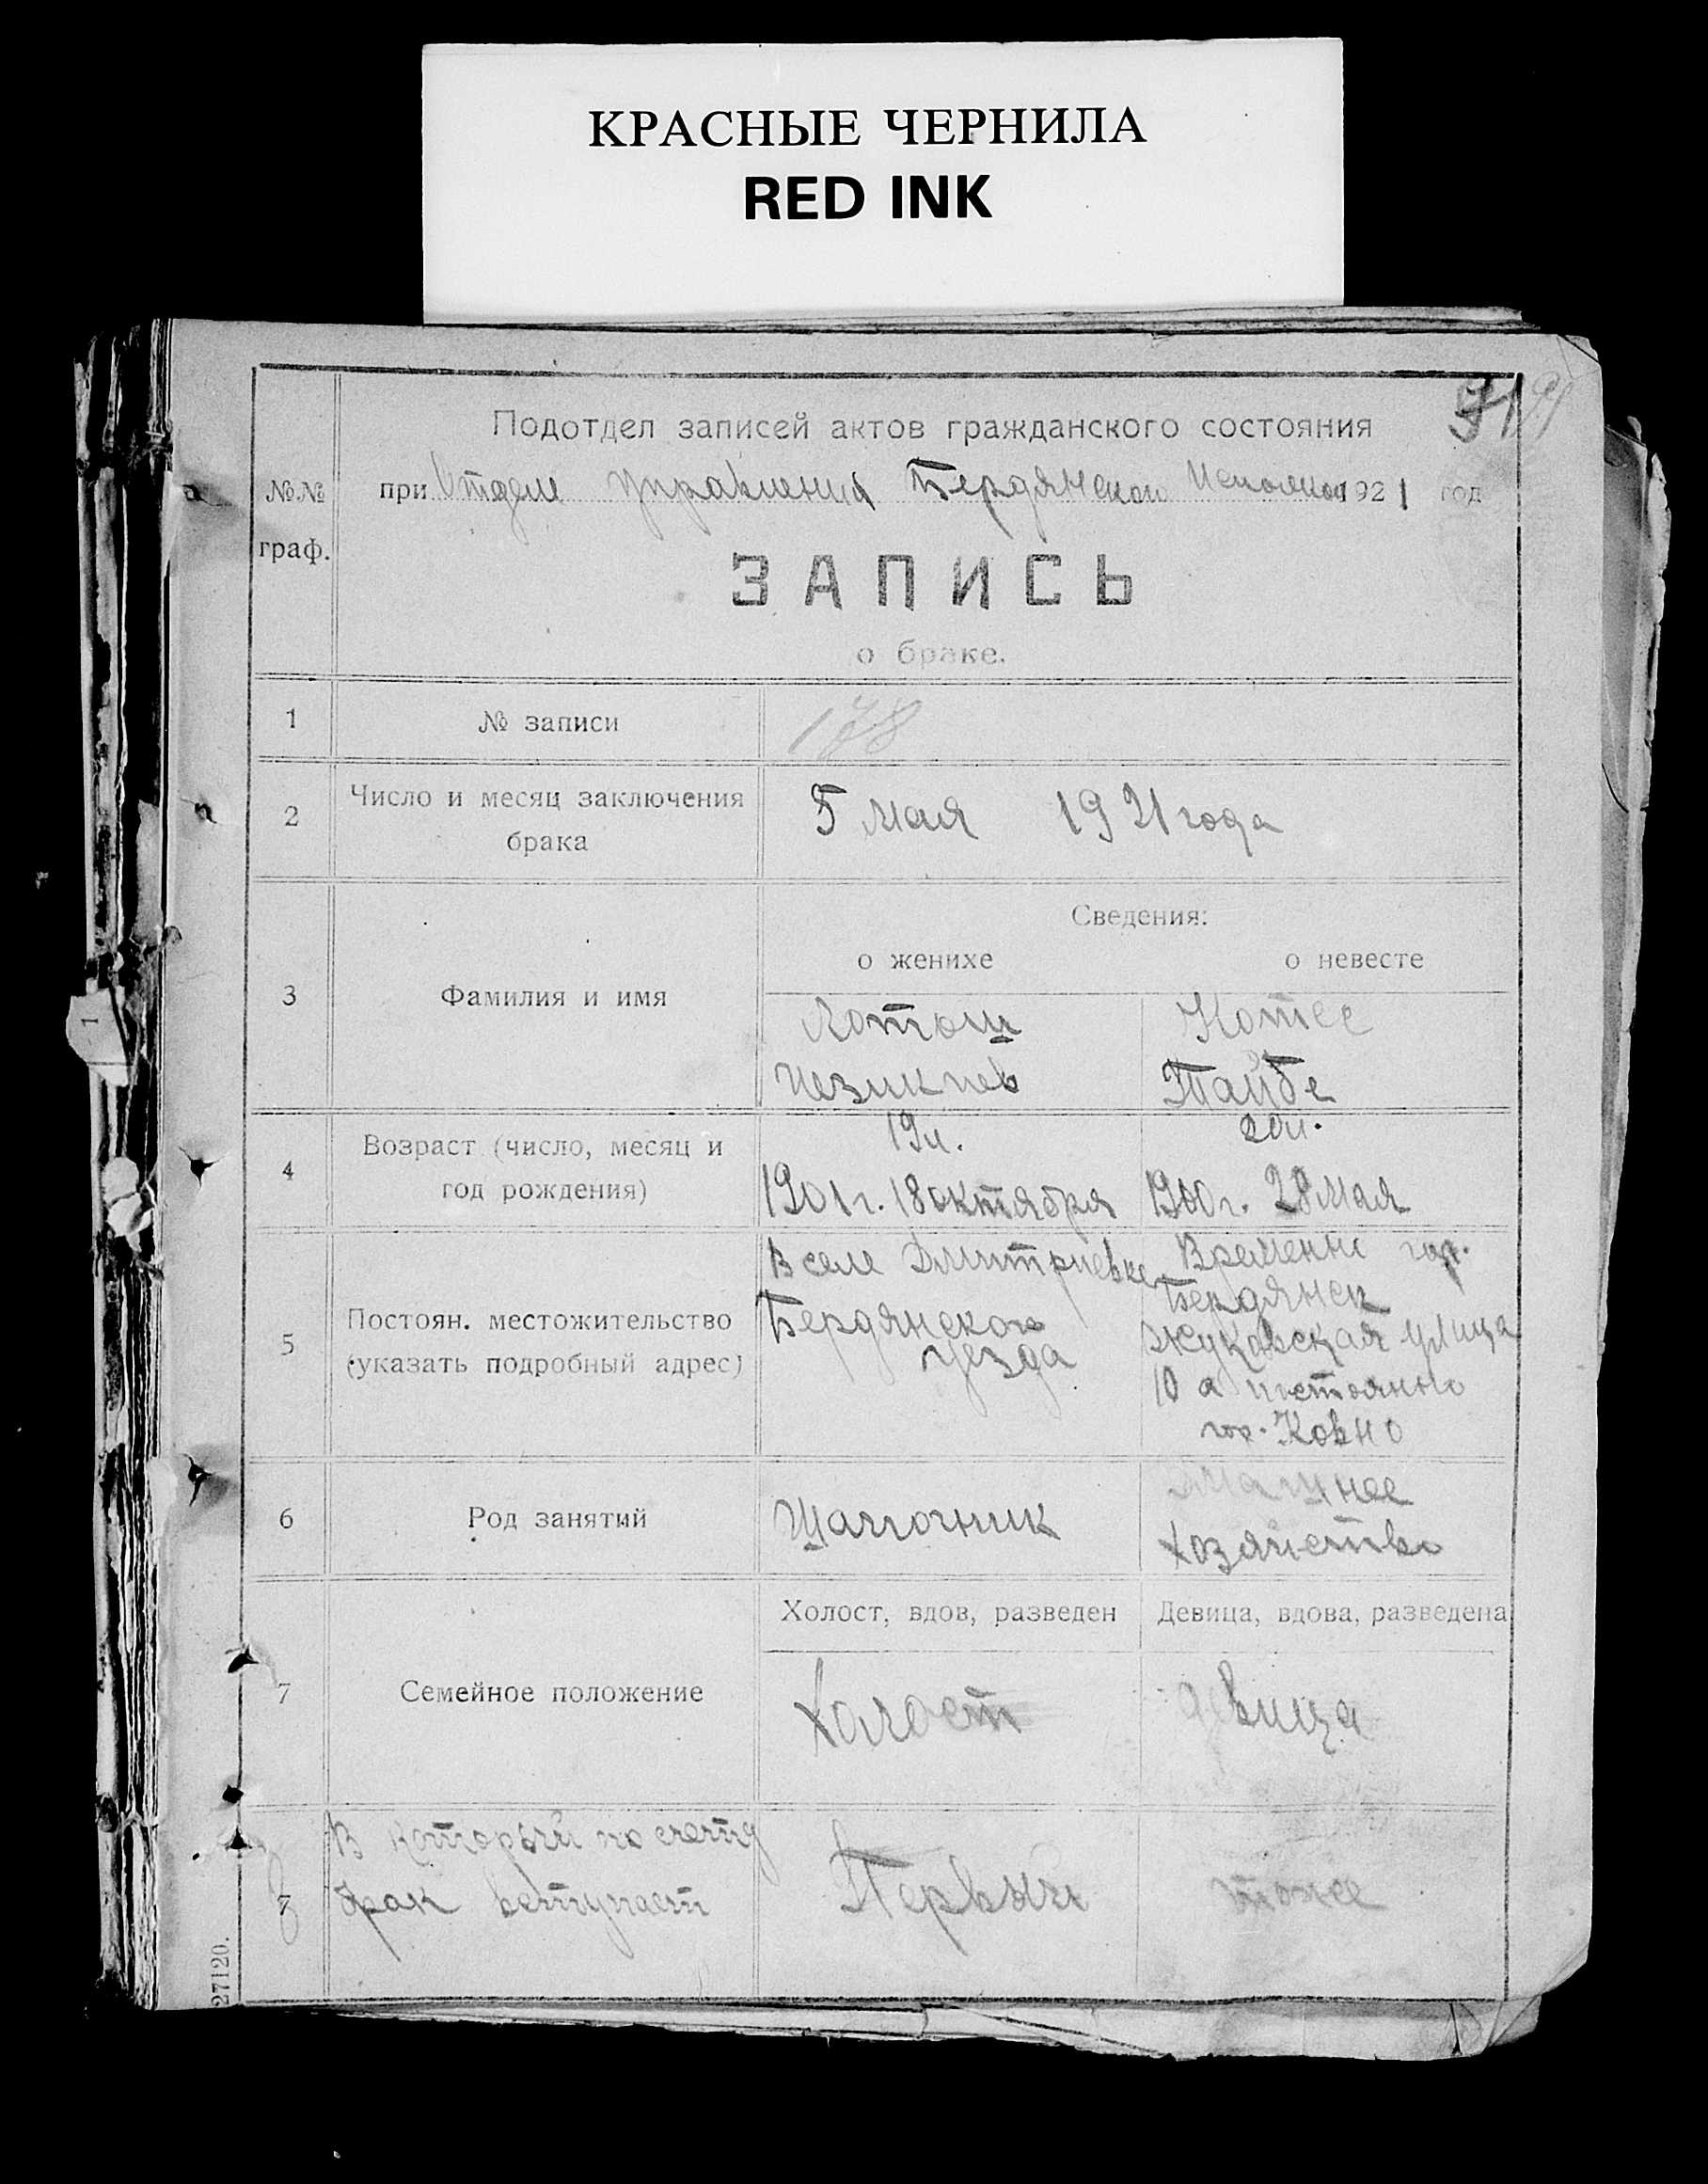 КРАСНЫЕ ЧЕРНИЛА
RED INK
Подотдел записей актов гражданского состояния
№№ граф.
при Отделе Управления Бердянского 1921 год
ЗАПИСЬ
о браке.
1 № записи 178
2 Число и месяц заключения брака
5 мая 1921 года
3 Фамилия и имя
Сведения:
о женихе о невесте
Лотош
Иезикиев Тайбе
4 Возраст (число, месяц и год рождения)
19 л. 20 л.
1901 г. 18 октября 1900 г. 28 мая
5 Постоян. местожительство
(указать подробный адрес)
В селе Дмитриевке
Бердянского
уезда
Временно гор.
Бердянск
Жуковская улица
10 а постоянно
гор. Ковно
6 Род занятый
Шапочник
Домашнее
хозяйство
7 Семейное положение
Холост, вдов, разведен Девица, вдова, разведена
Холост девица
В который по счету
брак вступает
Первый тоже
27120.
1